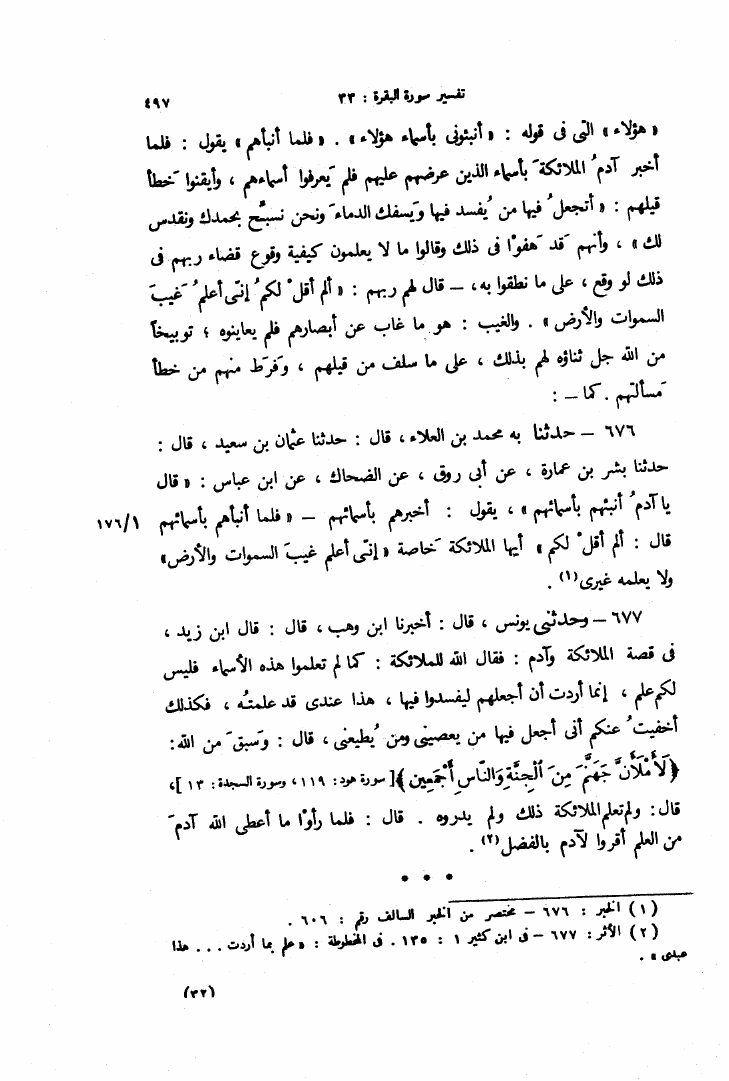 تفسير سورة البقرة : ٣٣
٤٩٧
« هؤلاء » التى فى قوله : « أنبئونى بأسماء هؤلاء » . « فلما أنبأهم » يقول : فلما
أخبر آدمُ الملائكةَ بأسماء الذين عرضهم عليهم فلم يَعرفوا أسماءهم ، وأيقنوا خَطأ
قيلهم : « أتجعلُ فيها من يُفسد فيها ويَسفك الدماءَ ونحن نسبِّح بحمدك ونقدس
لك » ، وأنهم قَد هَفوْا فى ذلك وقالوا ما لا يعلمون كيفية وقوع قضاء ربهم فى
ذلك لو وقع ، على ما نطقوا به، – قال لهم ربهم : « ألم أقلْ لكمُ إنّى أعلمُ غَيبَ
السموات والأرض » . والغيب : هو ما غاب عن أبصارهم فلم يعاينوه ؛ توبيخاً
من الله جل ثناؤه لهم بذلك ، على ما سلف من قيلهم ، وفَرَط منهم من خطأ
مَسألتهم . كما – :
٦٧٦ – حدثنا به محمد بن العلاء ، قال : حدثنا عثمان بن سعيد ، قال :
حدثنا بشر بن عمارة ، عن أبى روق ، عن الضحاك ، عن ابن عباس : « قال
يا آدمُ أنبئهم بأسمائهم » ، يقول : أخبرهم بأسمائهم – « فلما أنبأهم بأسمائهم
١٧٦/١
قال : ألم أقلْ لكم » أيها الملائكة خَاصة « إنّى أعلم غيبَ السموات والأرض »
ولا يعلمه غيرى (١) .
٦٧٧ – وحدثنى يونس ، قال : أخبرنا ابن وهب ، قال : قال ابن زيد ،
فى قصة الملائكة وآدم : فقال الله للملائكة : كما لم تعلموا هذه الأسماء فليس
لكم علم ، إنما أردت أن أجعلهم ليفسدوا فيها ، هذا عندى قد علمتُه ، فكذلك
أخفيتُ عنكم أنى أجعل فيها من يعصينى ومن يُطيعنى ، قال : وسَبقَ من الله :
﴿ لَأَمْلَأَنَّ جَهَنَّمَ مِنَ الْجِنَّةِ وَالنَّاسِ أَجْمَعِين ﴾ [ سورة هود: ١١٩ ، وسورة السجدة : ١٣ ] ،
قال : ولم تعلم الملائكة ذلك ولم يدروه . قال : فلما رأوْا ما أعطى الله آدمَ
من العلم أقروا لآدم بالفضل (٢) .
* * *
(١) الخبر : ٦٧٦ – مختصر من الخبر السالف رقم : ٦٠٦ .
(٢) الأثر : ٦٧٧ – فى ابن كثير ١ : ١٣٥ . فى المخطوطة : « علم بما أردت . . . هذا
عبدى » .
(٣٢)